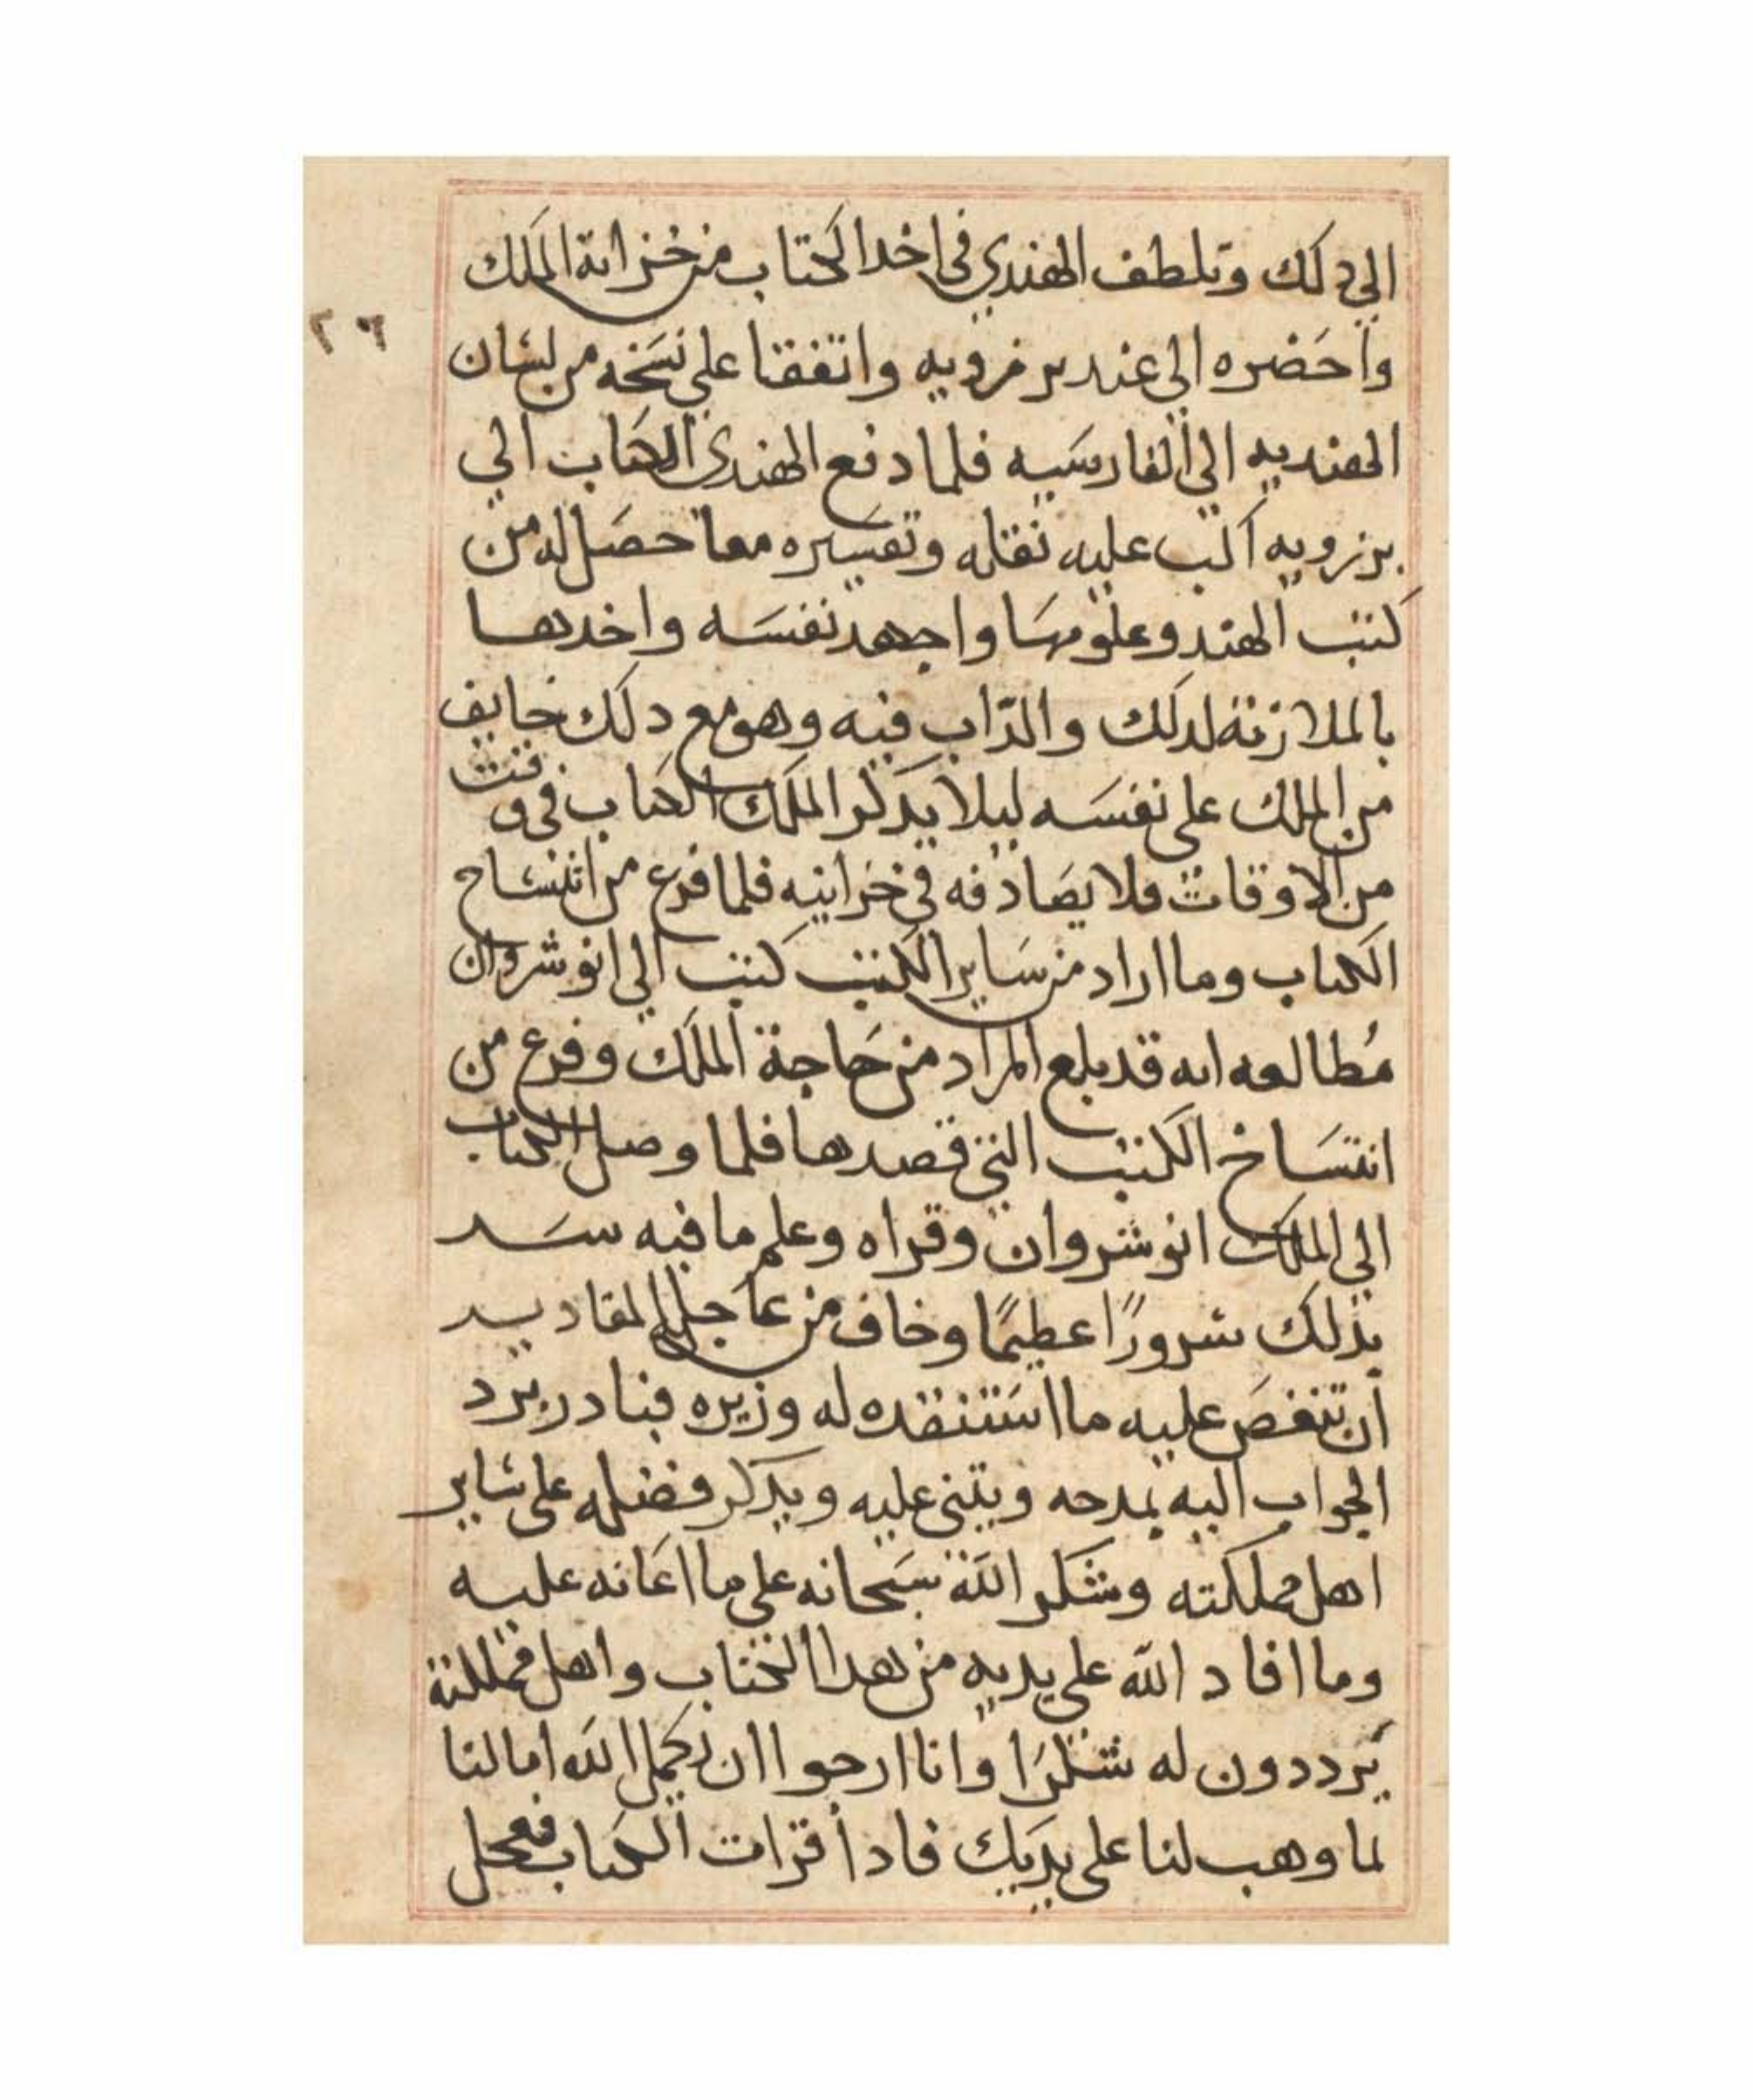 الي دلك وتلطف الهندي في اخد الكتاب من خزانة الملك
٢٦
واحضره الي عند برزويه واتفقا علي نسخه من لسان
الهنديه الي الفارسيه فلما دفع الهندي الكتاب الي
برزويه اكب عليه نقله وتفسيره مما حصل له من
كتب الهند وعلومها واجهد نفسه واخدها
بالملازمة لدلك والدّاب فيه وهو مع دلك خايف
من الملك علي نفسه ليلا يدكر الملك الكتاب في وقت
من الاوقات فلا يصادفه في خزاينه فلما فرع من انتساخ
الكتاب وما اراد من ساير الكتب كتب الي انوشروان
مُطالعه انه قد بلع المراد من حاجة الملك وفرع من
انتساخ الكتب التي قصدها فلما وصل الكتاب
الي الملك انوشروان وقراه وعلم ما فيه سر
بذلك سرورًا عظيمًا وخاف من عاجل المقادير
ان تنغص عليه ما استنقده له وزيره فبادر برد
الجواب اليه يمدحه ويثني عليه ويدكر فضله علي ساير
اهل مملكته وشكر الله سبحانه علي ما اعانه عليه
وما افاد الله علي يديه من هدا الكتاب واهل مملكته
يرددون له شكرًا وانا ارجوا ان يكمل الله امالنا
لما وهب لنا علي يديك فادا قرات الكتاب فعجل